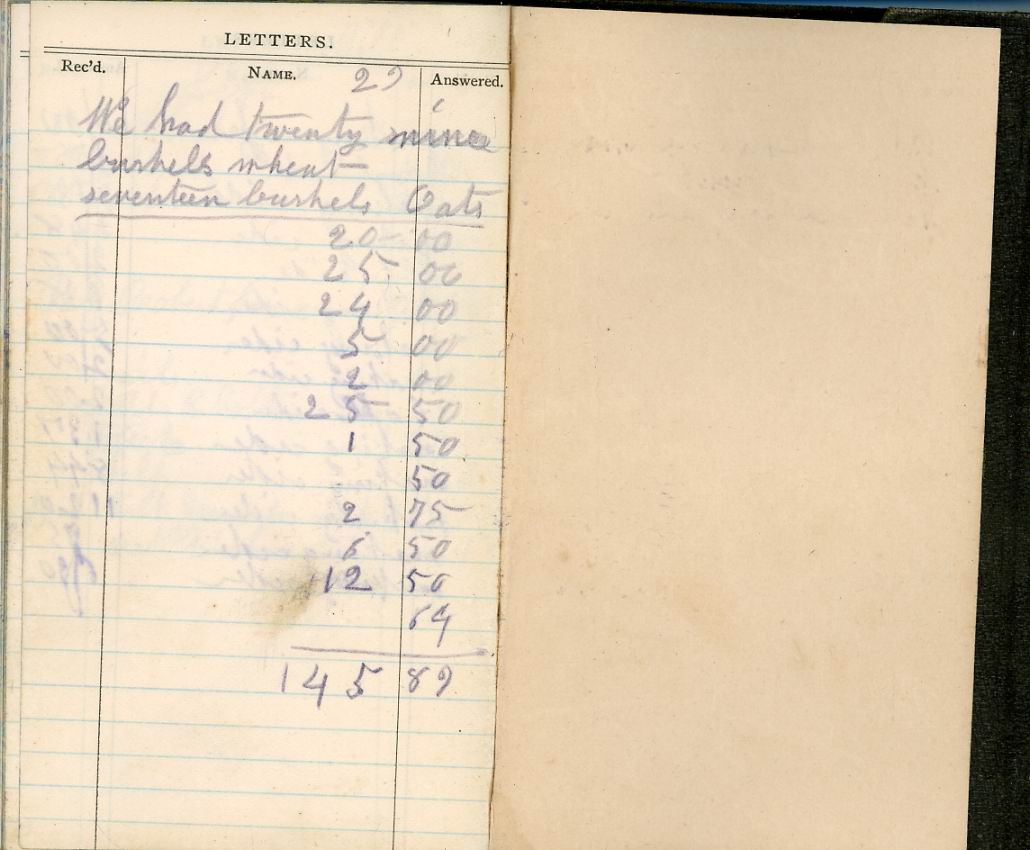 LETTERS.
Rec'd. NAME. 29 Answered.
We had twenty nine
bushels wheat
seventeen bushels Oats
20-00
25 00
24 00
5 00
2 00
25 50
1 50
50
2 75
6 50
12 50
64
145 89